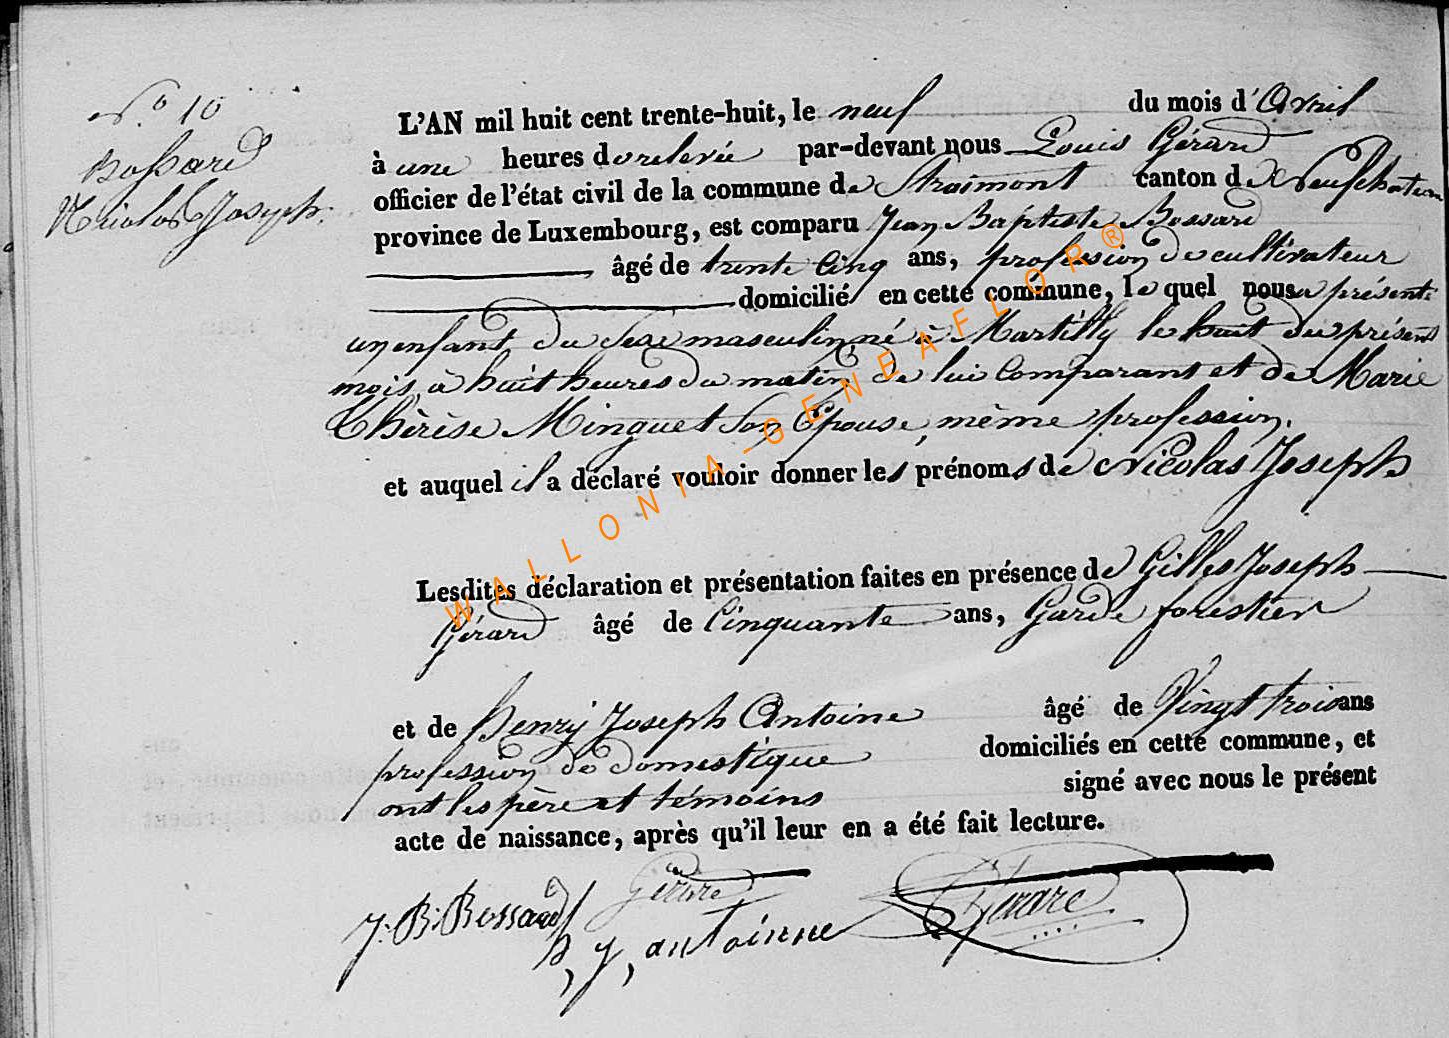 N.º 10
Bossard
Nicolas Joseph.
L'AN mil huit cent trente-huit, le neuf du mois d'Avril
à une heures de relevée par-devant nous Louis Gérard
officier de l'état civil de la commune de Straimont canton de Neufchateau
province de Luxembourg, est comparu Jean Baptiste Bossard
âgé de trente Cinq ans, profession de cultivateur
domicilié en cette commune, le quel nous a présenté
un enfant du Sexe masculin, né à Martilly le huit du présent
mois, à huit heures du matin, de lui Comparant et de Marie
Thérèse Minguet Son Epouse, même profession.
et auquel il a déclaré vouloir donner les prénoms de Nicolas Joseph
Lesdites déclaration et présentation faites en présence de Gilles Joseph
Gérard âgé de Cinquante ans, Garde forestier
et de henry Joseph Antoine âgé de Vingt trois ans
profession de domestique domiciliés en cette commune, et
ont les père et témoins signé avec nous le présent
acte de naissance, après qu'il leur en a été fait lecture.
J. B. Bossard Gérard
h, J, antoinne Gérard
WALLONIA-GENEAFLOR®